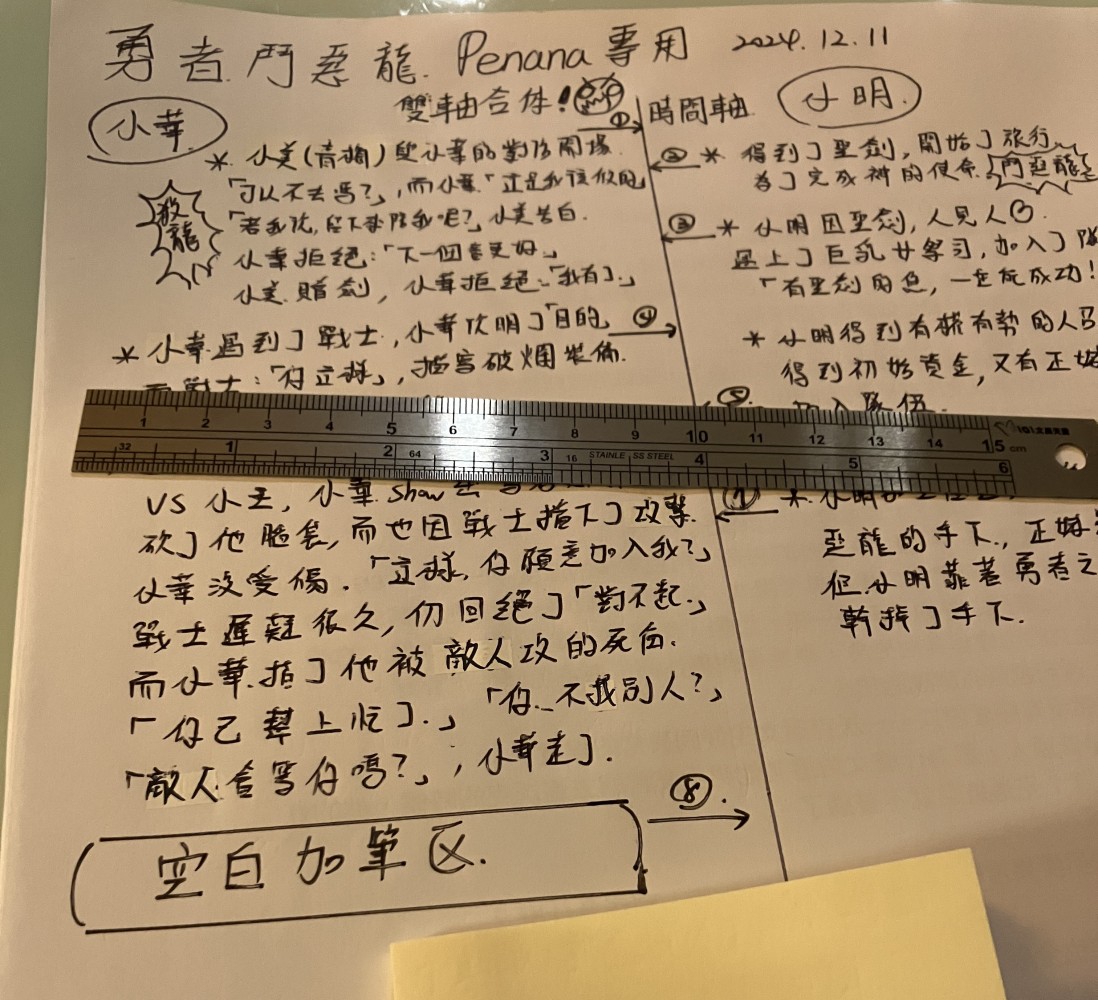 勇者鬥惡龍 Penana專用 2024.12.11
雙軸合併!
小華
① 時間軸
小明
＊小美(青梅)與小華的對話開場
「可以不去嗎?」,而小華「這是我該做的
小美告白.
小華拒絕:「下一個會更好」
小美贈劍,小華拒絕:「我有了」
殺龍
＊小華遇到了戰士,小華說明了目的 ④
而戰士: ,描寫破爛裝備.
VS 小王,小華 show
砍了他 ,而也因戰士擋下了攻擊.
小華沒受傷. 你願意加入我?」
戰士遲疑很久,仍回絕了「對不起」
而小華指了他被敵人攻的死角.
「你已幫上忙了.」 「你 不找別人?」
「敵人會等你嗎?」,小華走了.
空白加筆区.
⑧
② ＊得到了聖劍,開始了旅行
為了完成神的使命.鬥惡龍
③ ＊小明因聖劍,人見人
遇上了巨乳女 ,加入了隊
「有聖劍的您,一定能成功!
＊小明得到有權有勢的人
得到初始資金,又有正妹
⑤ 加入隊伍.
⑦ ＊小明
惡龍的手下.,正妹
但小明靠著勇者之
斬掉了手下.
1 2 3 4 5 6 7 8 9 10 11 12 13 14 15 cm
32 1 2 64 3 16 STAINLESS STEEL 4 5 6